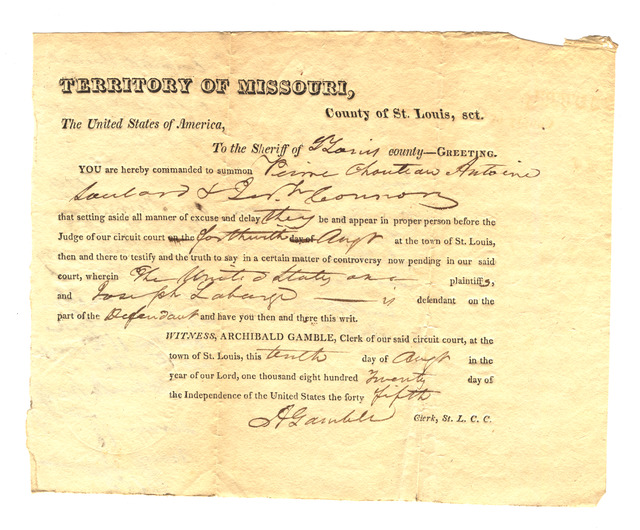 TERRITORY OF MISSOURI,
County of St. Louis, sct.
The United States of America,
To the Sheriff of St Louis county—GREETING.
YOU are hereby commanded to summon Pierre Chouteau Antoine
Soulard & Jer. Connor
that setting aside all manner of excuse and delay they be and appear in proper person before the
Judge of our circuit court on the forthwith day of Augt at the town of St. Louis,
then and there to testify and the truth to say in a certain matter of controversy now pending in our said
court, wherein The United States are plaintiffs,
and Joseph Labarge is defendant on the
part of the Defendant and have you then and there this writ.
WITNESS, ARCHIBALD GAMBLE, Clerk of our said circuit court, at the
town of St. Louis, this tenth day of Augt in the
year of our Lord, one thousand eight hundred Twenty day of
the Independence of the United States the forty fifth
A Gamble Clerk, St. L. C. C.